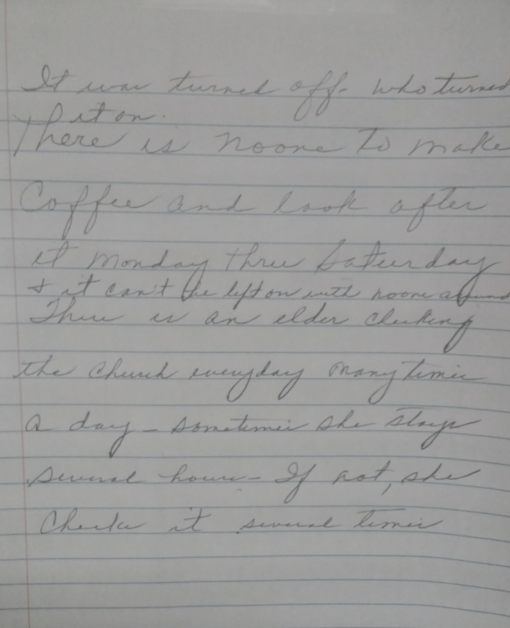 It was turned off- who turned
it on.
There is noone to make
Coffee and look after
it Monday thru Saturday
& it can't be left on with noone around
There is an elder checking
the church everyday many times
a day - sometimes she stays
several hours - If not, she
Checks it several times